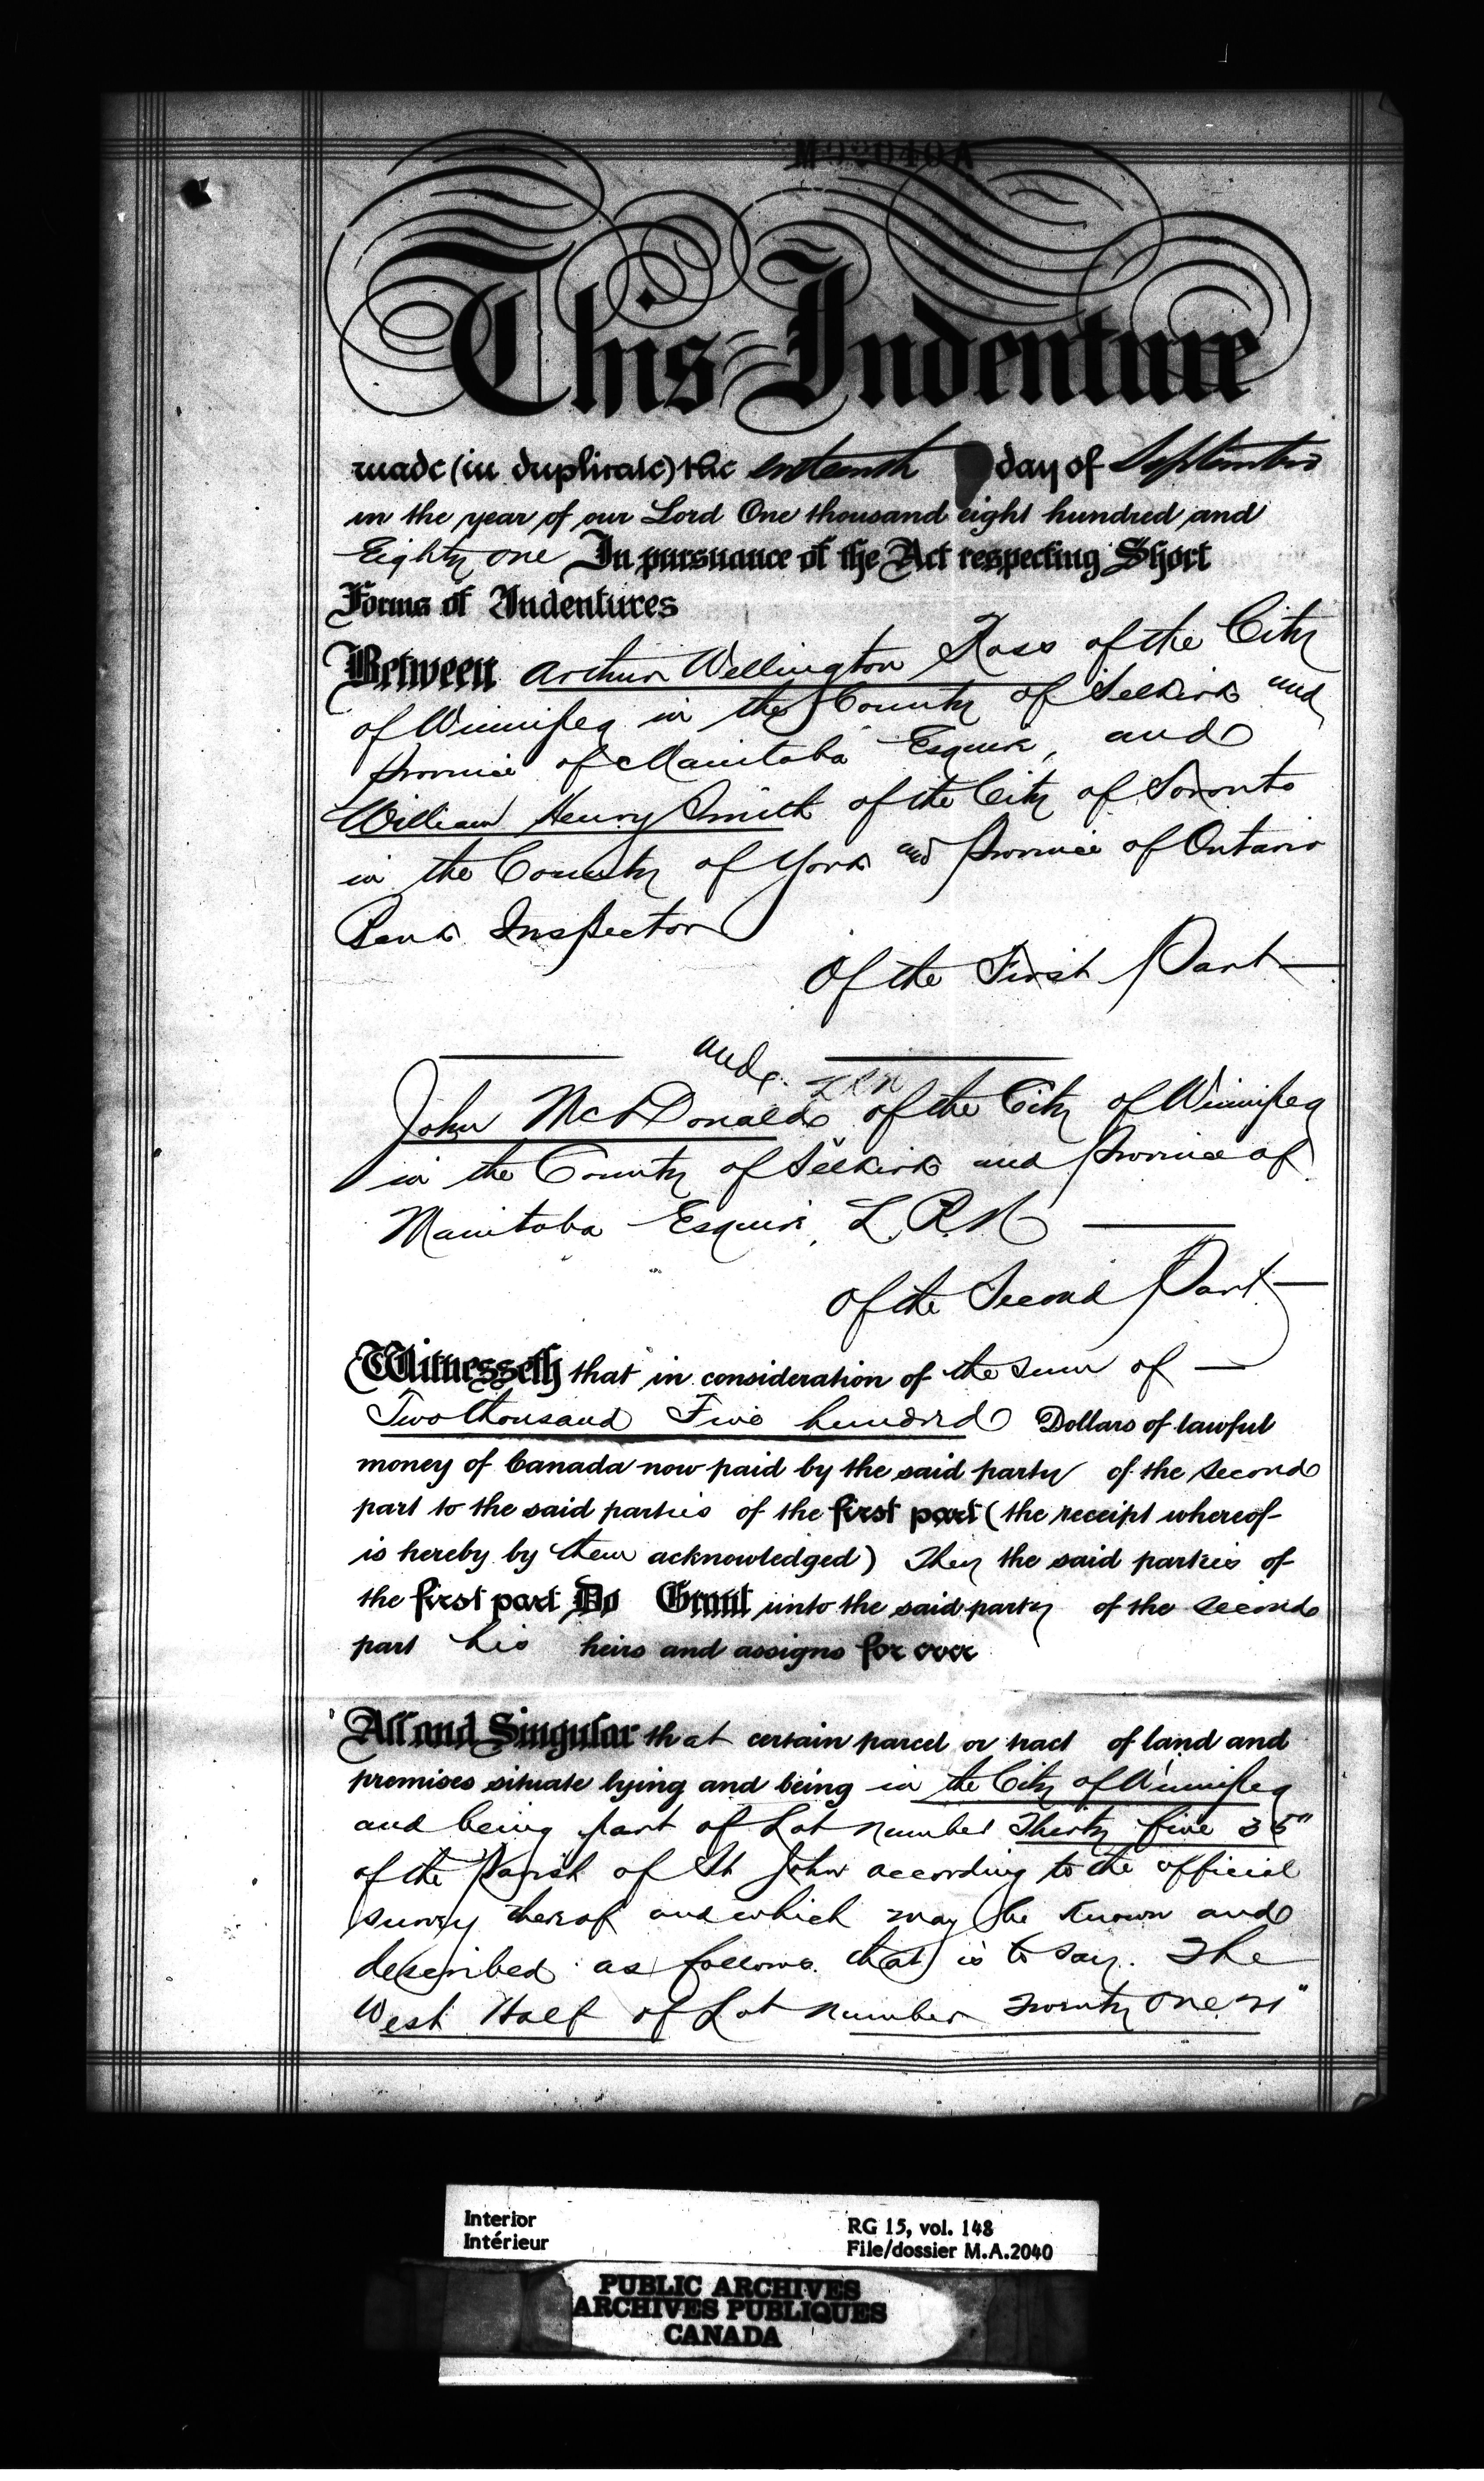 M92040A
This Indenture
made (in duplicate) the sixteenth day of September
in the year of our Lord One thousand eight hundred and
Eighty one In pursuance of the Act respecting Short
Forms of Indentures
Between Arthur Wellington Ross of the City
of Winnipeg in the County of Selkirk and
Province of Manitoba Esquire, and
William Henry Smith of the City of Toronto
in the County of York and Province of Ontario
Bank Inspector
Of the First Part
and
John McDonald of the City of Winnipeg
in the County of Selkirk and Province of
Manitoba Esquire, L.R.N
Of the Second Part
Witnesseth that in consideration of the sum of
Two thousand Five hundred Dollars of lawful
money of Canada now paid by the said party of the second
part to the said parties of the first part (the receipt whereof
is hereby by them acknowledged) They the said parties of
the first part Do Grant unto the said party of the second
part his heirs and assigns for ever
All and Singular that certain parcel or tract of land and
premises situate lying and being in the City of Winnipeg
and being part of Lot number Thirty five 35"
of the Parish of St John according to the official
survey thereof and which may be known and
described as follows that is to say. The
West Half of Lot number Twenty One 21"
Interior
Intérieur
RG 15, vol. 148
File/dossier M.A.2040
PUBLIC ARCHIVES
ARCHIVES PUBLIQUES
CANADA